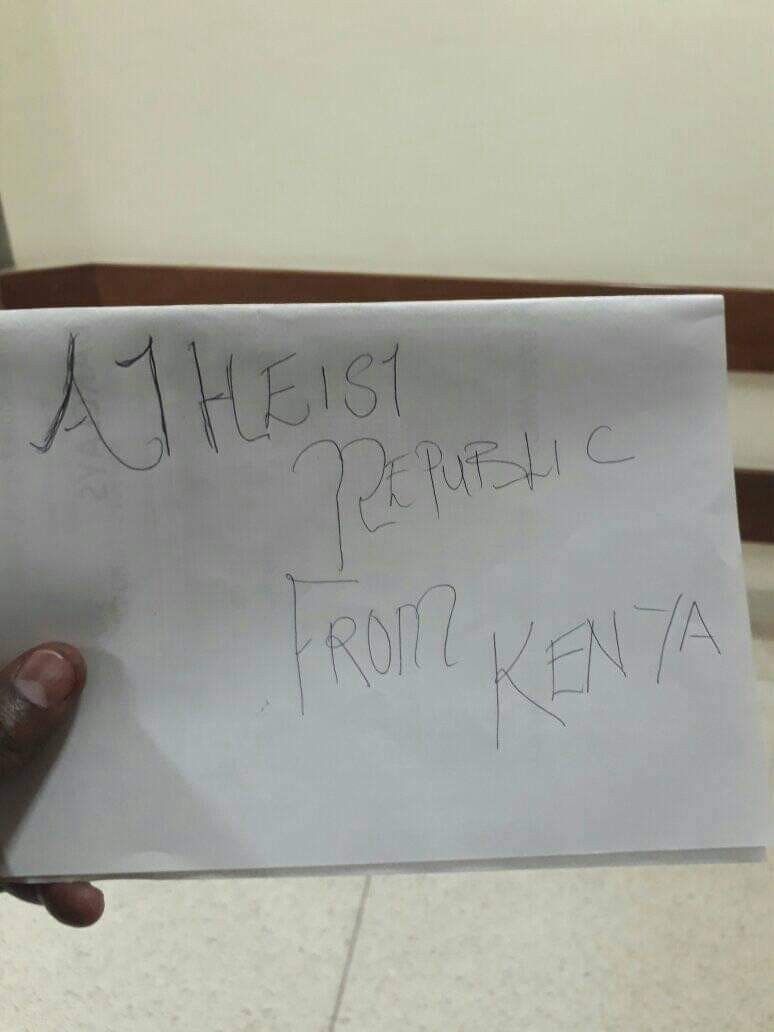 ATHEIST
REPUBLIC
FROM KENYA